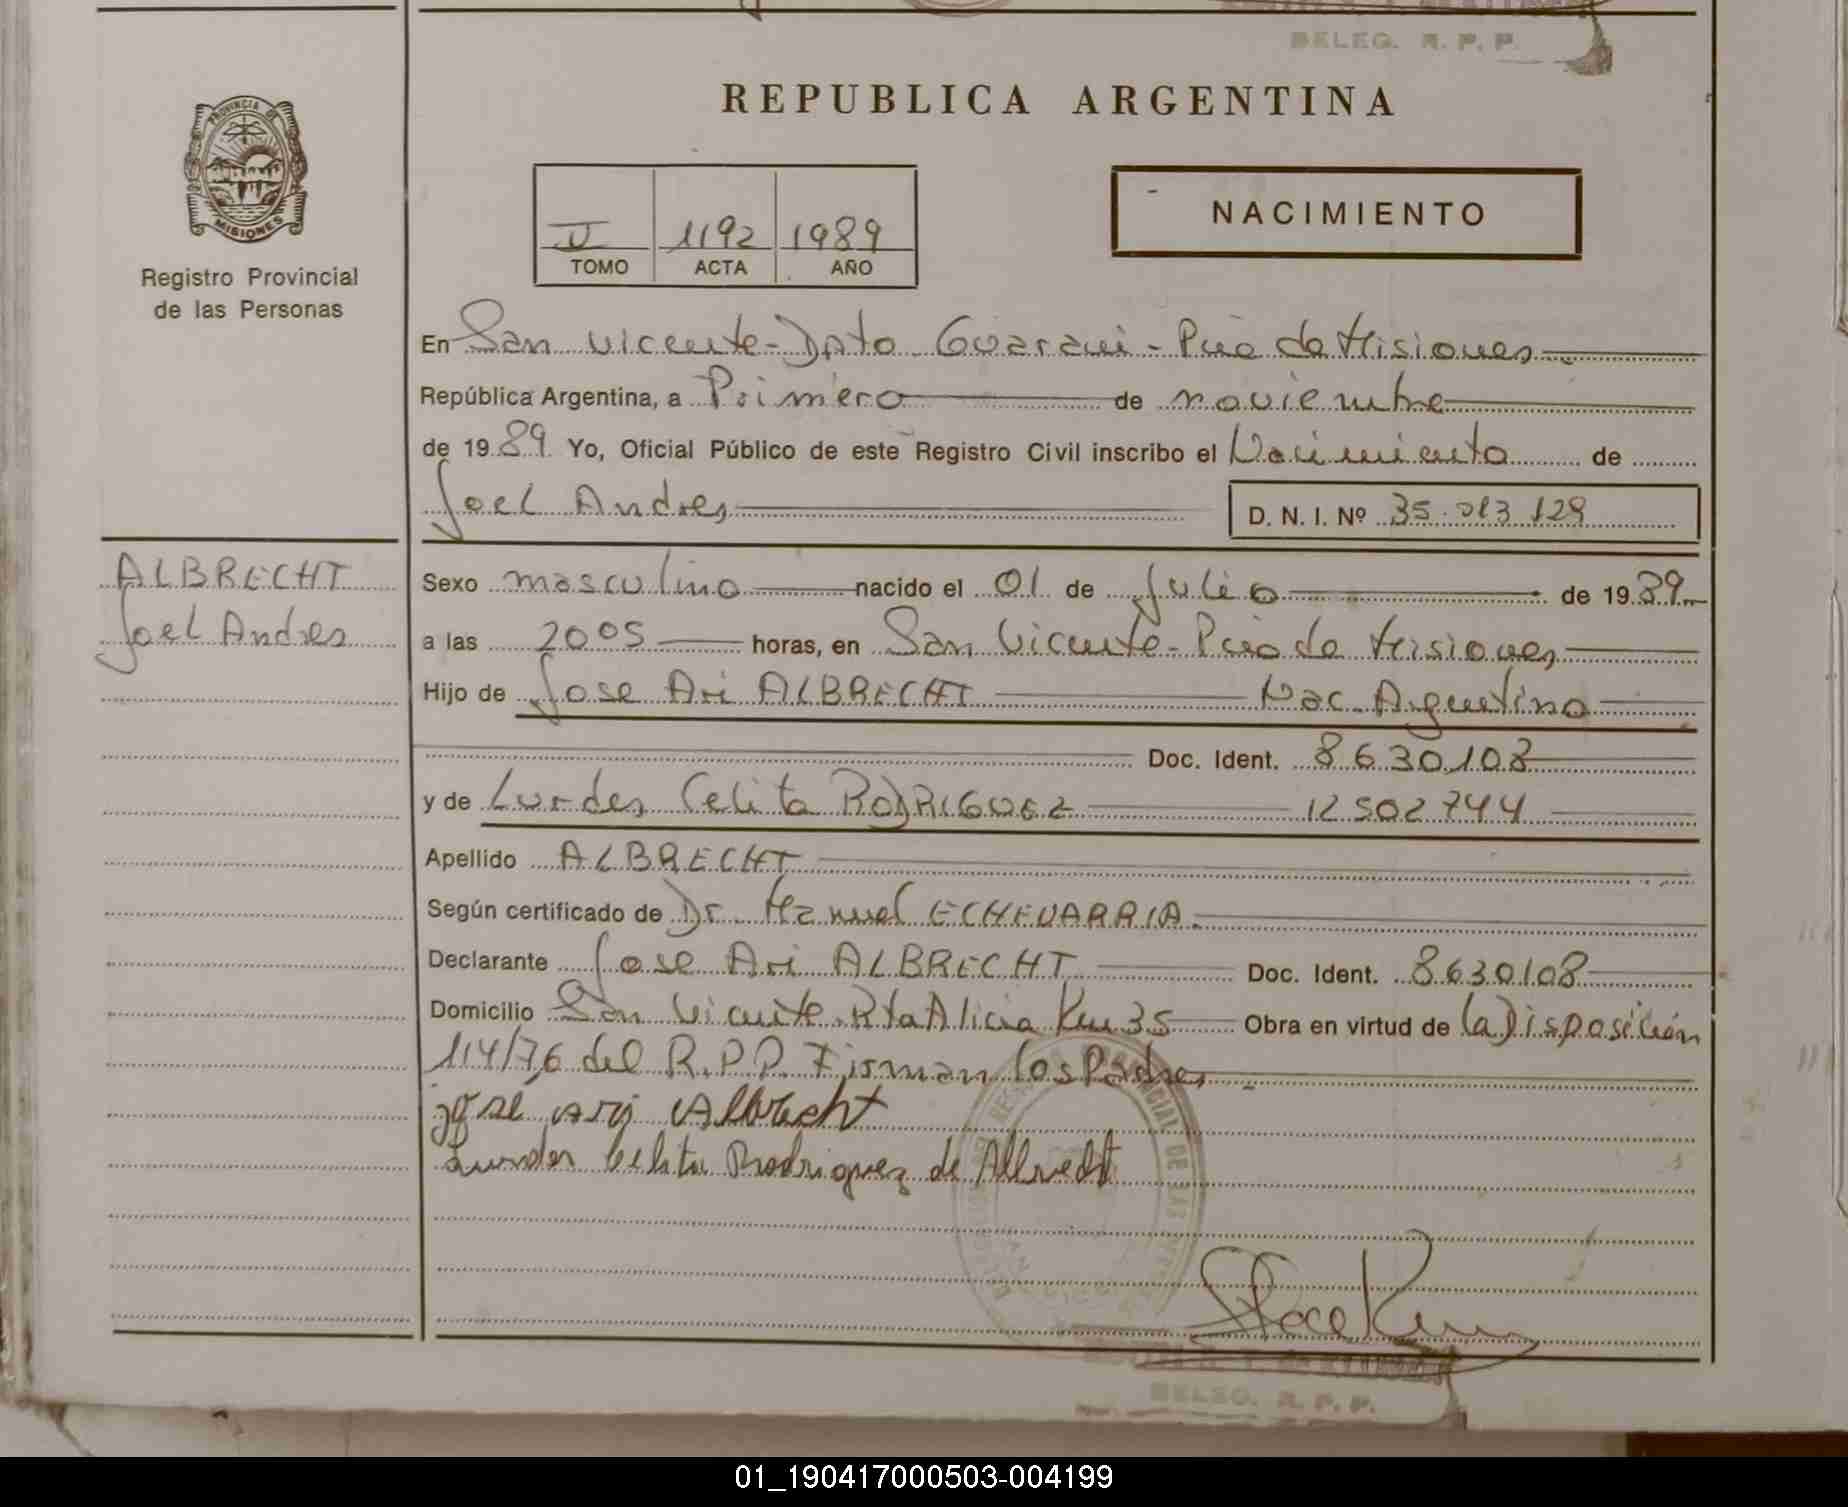 DELEG. R. P. P.
REPUBLICA ARGENTINA
PROVINCIA DE
MISIONES
Registro Provincial
de las Personas
II 1192 1989
TOMO ACTA AÑO
NACIMIENTO
En San Vicente - Dpto Guarani - Pcia de Misiones
República Argentina, a Primero de noviembre
de 19 89 Yo, Oficial Público de este Registro Civil inscribo el Nacimiento de
Joel Andres
D. N. I. Nº 35.013.129
ALBRECHT
Joel Andres
Sexo masculino nacido el 01 de Julio de 19 89
a las 20 05 horas, en San Vicente - Pcia de Misiones
Hijo de Jose Ari ALBRECHT Nac. Argentino
Doc. Ident. 8630108
y de Lurdes Celita RODRIGUEZ 12502744
Apellido ALBRECHT
Según certificado de Dr. Manuel ECHEVARRIA
Declarante Jose Ari ALBRECHT Doc. Ident. 8630108
Domicilio San Vicente Rta Alicia Km 35 Obra en virtud de la Disposición
114/76 del R.P.P. Firman los Padres
jose Ari Albrecht
Lurdes Celita Rodriguez de Albrecht
DELEG. R. P. P.
01_190417000503-004199